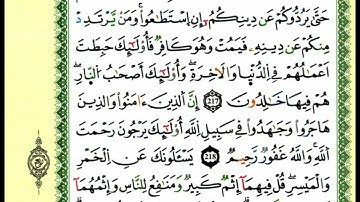 حَتَّىٰ يَرُدُّوكُمْ عَن دِينِكُمْ إِنِ اسْتَطَٰعُواْ وَمَن يَرْتَدِدْ
مِنكُمْ عَن دِينِهِۦ فَيَمُتْ وَهُوَ كَافِرٌ فَأُوْلَٰٓئِكَ حَبِطَتْ
أَعْمَٰلُهُمْ فِي الدُّنْيَا وَالْأٓخِرَةِ ۖ وَأُوْلَٰٓئِكَ أَصْحَٰبُ النَّارِ ۖ
هُمْ فِيهَا خَٰلِدُونَ 217 إِنَّ الَّذِينَ ءَامَنُواْ وَالَّذِينَ
هَاجَرُواْ وَجَٰهَدُواْ فِي سَبِيلِ اللَّهِ أُوْلَٰٓئِكَ يَرْجُونَ رَحْمَتَ
اللَّهِ ۚ وَاللَّهُ غَفُورٌ رَّحِيمٌ 218 يَسْـَٔلُونَكَ عَنِ الْخَمْرِ
وَالْمَيْسِرِ ۖ قُلْ فِيهِمَآ إِثْمٌ كَبِيرٌ وَمَنَٰفِعُ لِلنَّاسِ وَإِثْمُهُمَآ